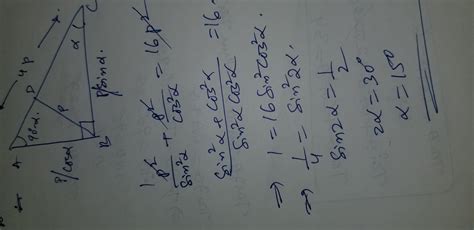 A
4P
D
C
90-α.
P
α
B
P/cosα
P/sinα.
p²/sin²α + p²/cos²α = 16p²
sin²α + cos²α / sin²α cos²α = 16.
⇒ 1 = 16 sin²α cos²α.
⇒ 1/4 = sin²2α.
sin2α = 1/2
2α = 30°
α = 15°